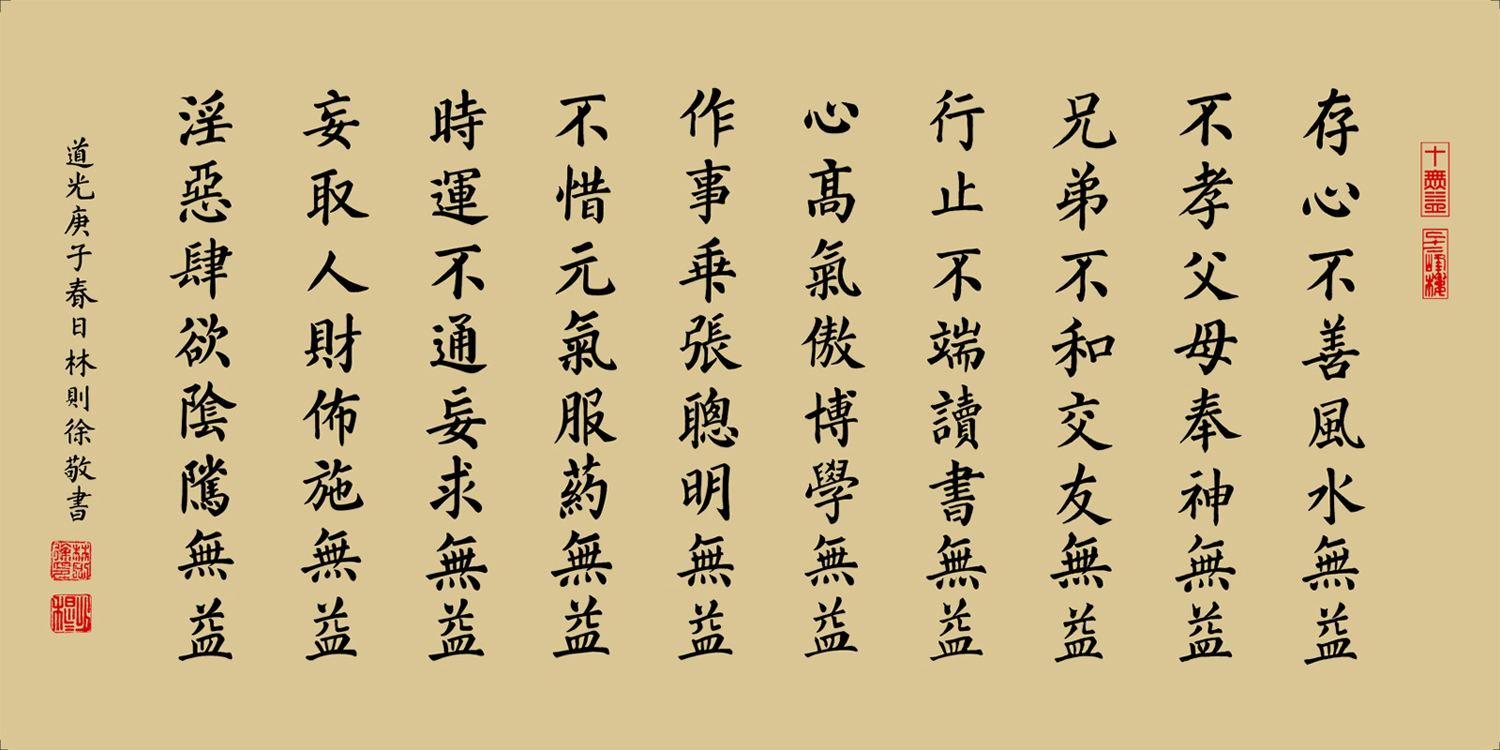 十無益
存心不善風水無益
不孝父母奉神無益
兄弟不和交友無益
行止不端讀書無益
心髙氣傲博學無益
作事乖張聰明無益
不惜元氣服葯無益
時運不通妄求無益
妄取人財佈施無益
淫惡肆欲陰隲無益
道光庚子春日林則徐敬書
林則徐印